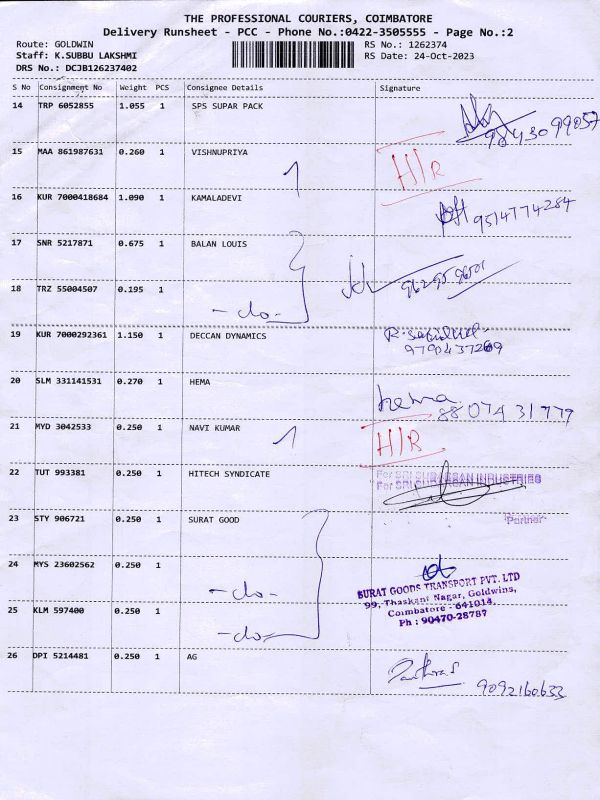 THE PROFESSIONAL COURIERS, COIMBATORE
Delivery Runsheet - PCC - Phone No.:0422-3505555 - Page No.:2
Route: GOLDWIN RS No.: 1262374
Staff: K.SUBBU LAKSHMI RS Date: 24-Oct-2023
DRS No.: DCJB126237402
S No Consignment No Weight PCS Consignee Details Signature
14 TRP 6052855 1.055 1 SPS SUPAR PACK
98430 99057
15 MAA 861987631 0.260 1 VISHNUPRIYA 1 H/R
16 KUR 7000418684 1.090 1 KAMALADEVI 9514774284
17 SNR 5217871 0.675 1 BALAN LOUIS
18 TRZ 55004507 0.195 1 -do-
19 KUR 7000292361 1.150 1 DECCAN DYNAMICS
9790437269
20 SLM 331141531 0.270 1 HEMA hema
88074 31779
21 MYD 3042533 0.250 1 NAVI KUMAR 1 H/R
22 TUT 993381 0.250 1 HITECH SYNDICATE
Partner
23 STY 906721 0.250 1 SURAT GOOD
24 MYS 23602562 0.250 1 -do-
SURAT GOODS TRANSPORT PVT. LTD
99, Thaskant Nagar, Goldwins,
Coimbatore - 641014.
Ph : 90470-28787
25 KLM 597400 0.250 1 -do-
26 DPI 5214481 0.250 1 AG
9092160633